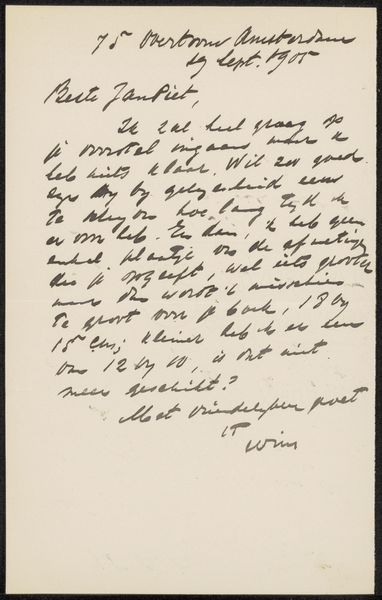 75 Overtoom Amsterdam
29 Sept. 1905
Beste Jan Piet,
Ik zal heel graag op
je voorstel ingaan maar ik
heb niets klaar. Wil zoo goed
zijn my by gelegenheid eens
te schryven hoe lang tyd ik
er voor heb. En dan, ik heb geen
enkel plaatje van de afmeting
die je opgeeft, wel iets grooter
maar dan wordt 't misschien
te groot voor je boek, 18 by
15 cm; kleiner heb ik er een
van 12 by 10, is dat niet
meer geschikt?
Met vriendelyken groet
Wim